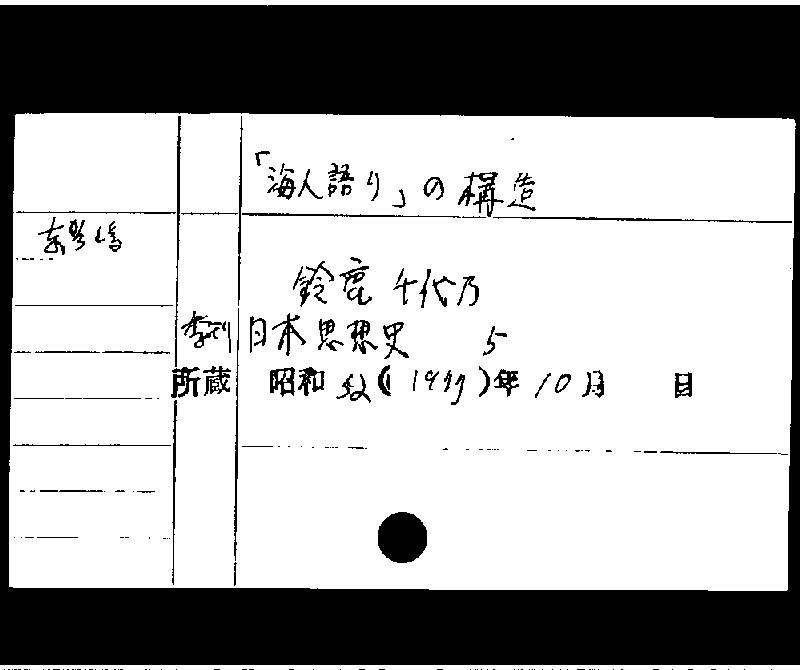 「海人語り」の構造
鈴鹿千代乃
季刊 日本思想史 5
所蔵 昭和52(1977)年10月 日